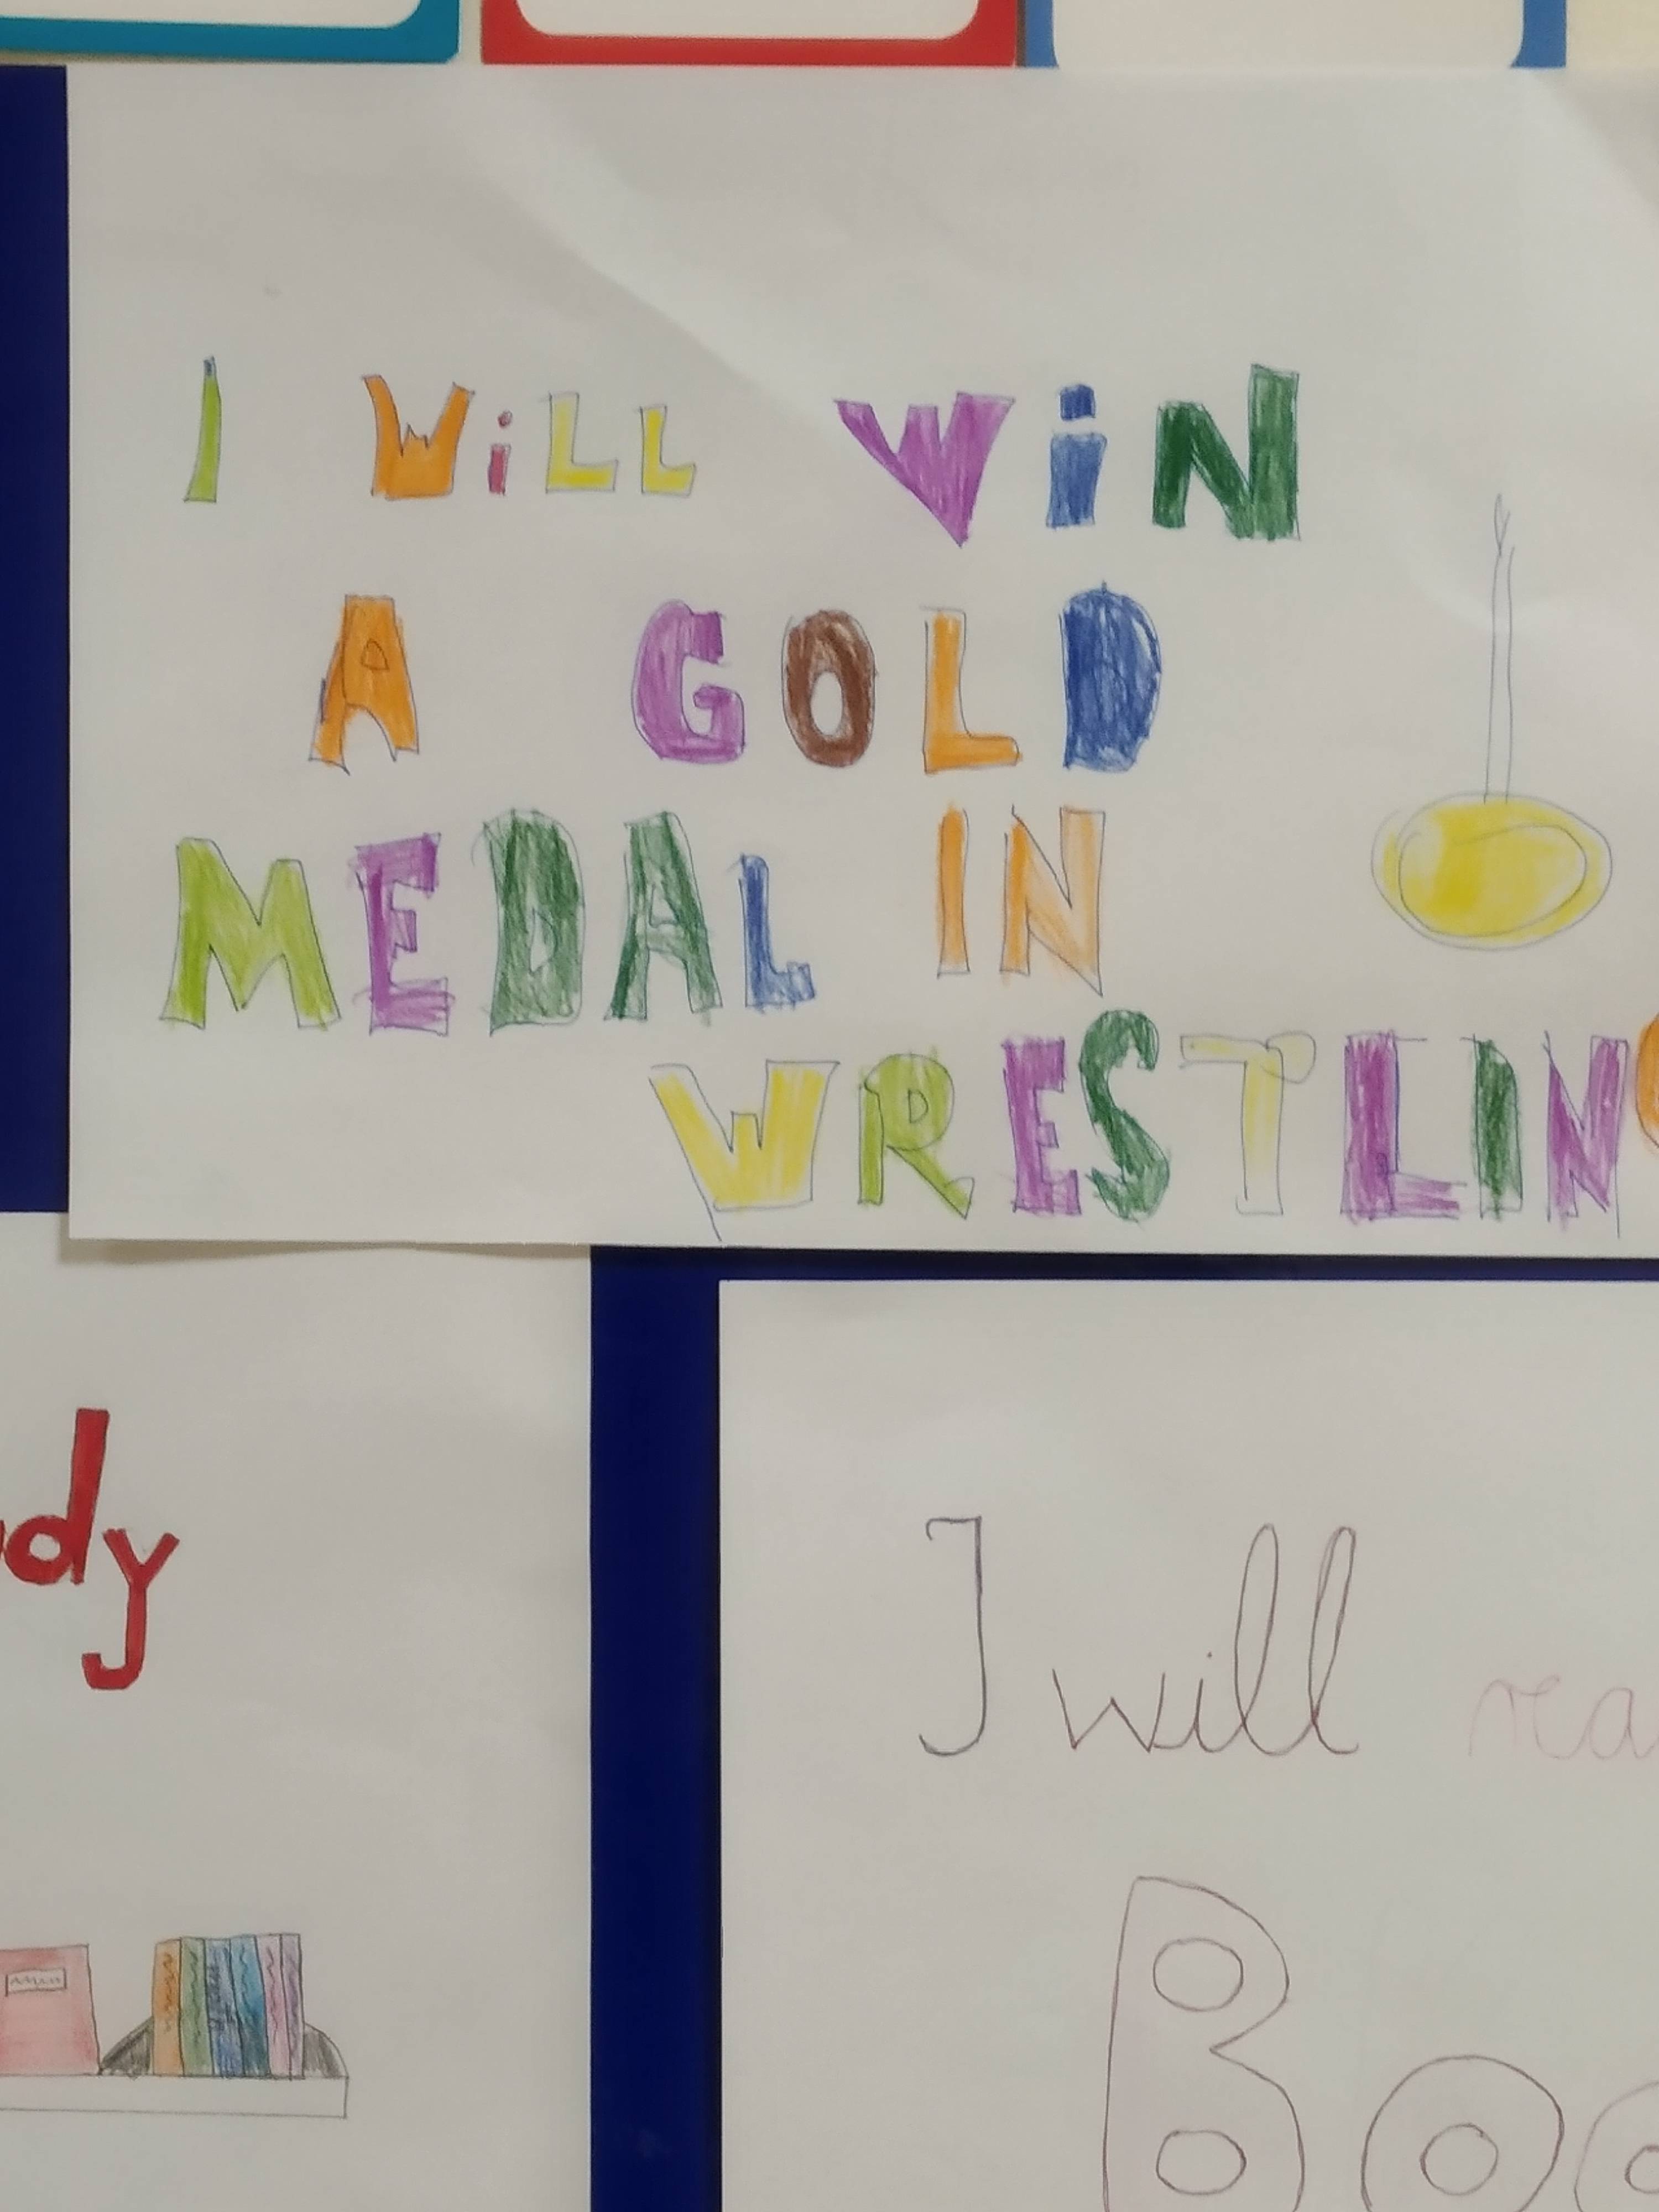 I WiLL WiN
A GOLD
MEDAL IN
WRESTLING
dy
I will rea
Boo